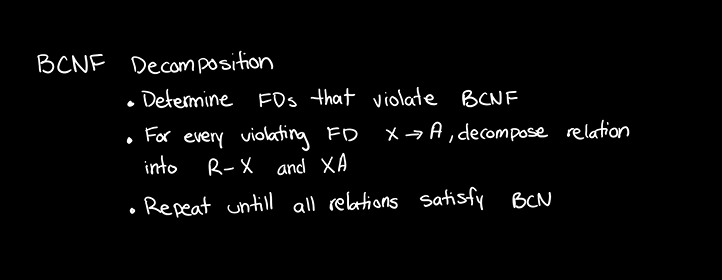 BCNF Decomposition
• Determine FDs that violate BCNF
• For every violating FD X → A, decompose relation
into R-X and XA
• Repeat untill all relations satisfy BCN